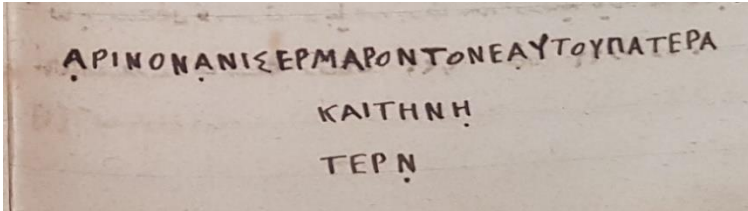 ΑΡΙΝΟΝΑΝΙΣΕΡΜΑΡΟΝΤΟΝΕΑΥΤΟΥΠΑΤΕΡΑ
ΚΑΙΤΗΝΗ
ΤΕΡΝ